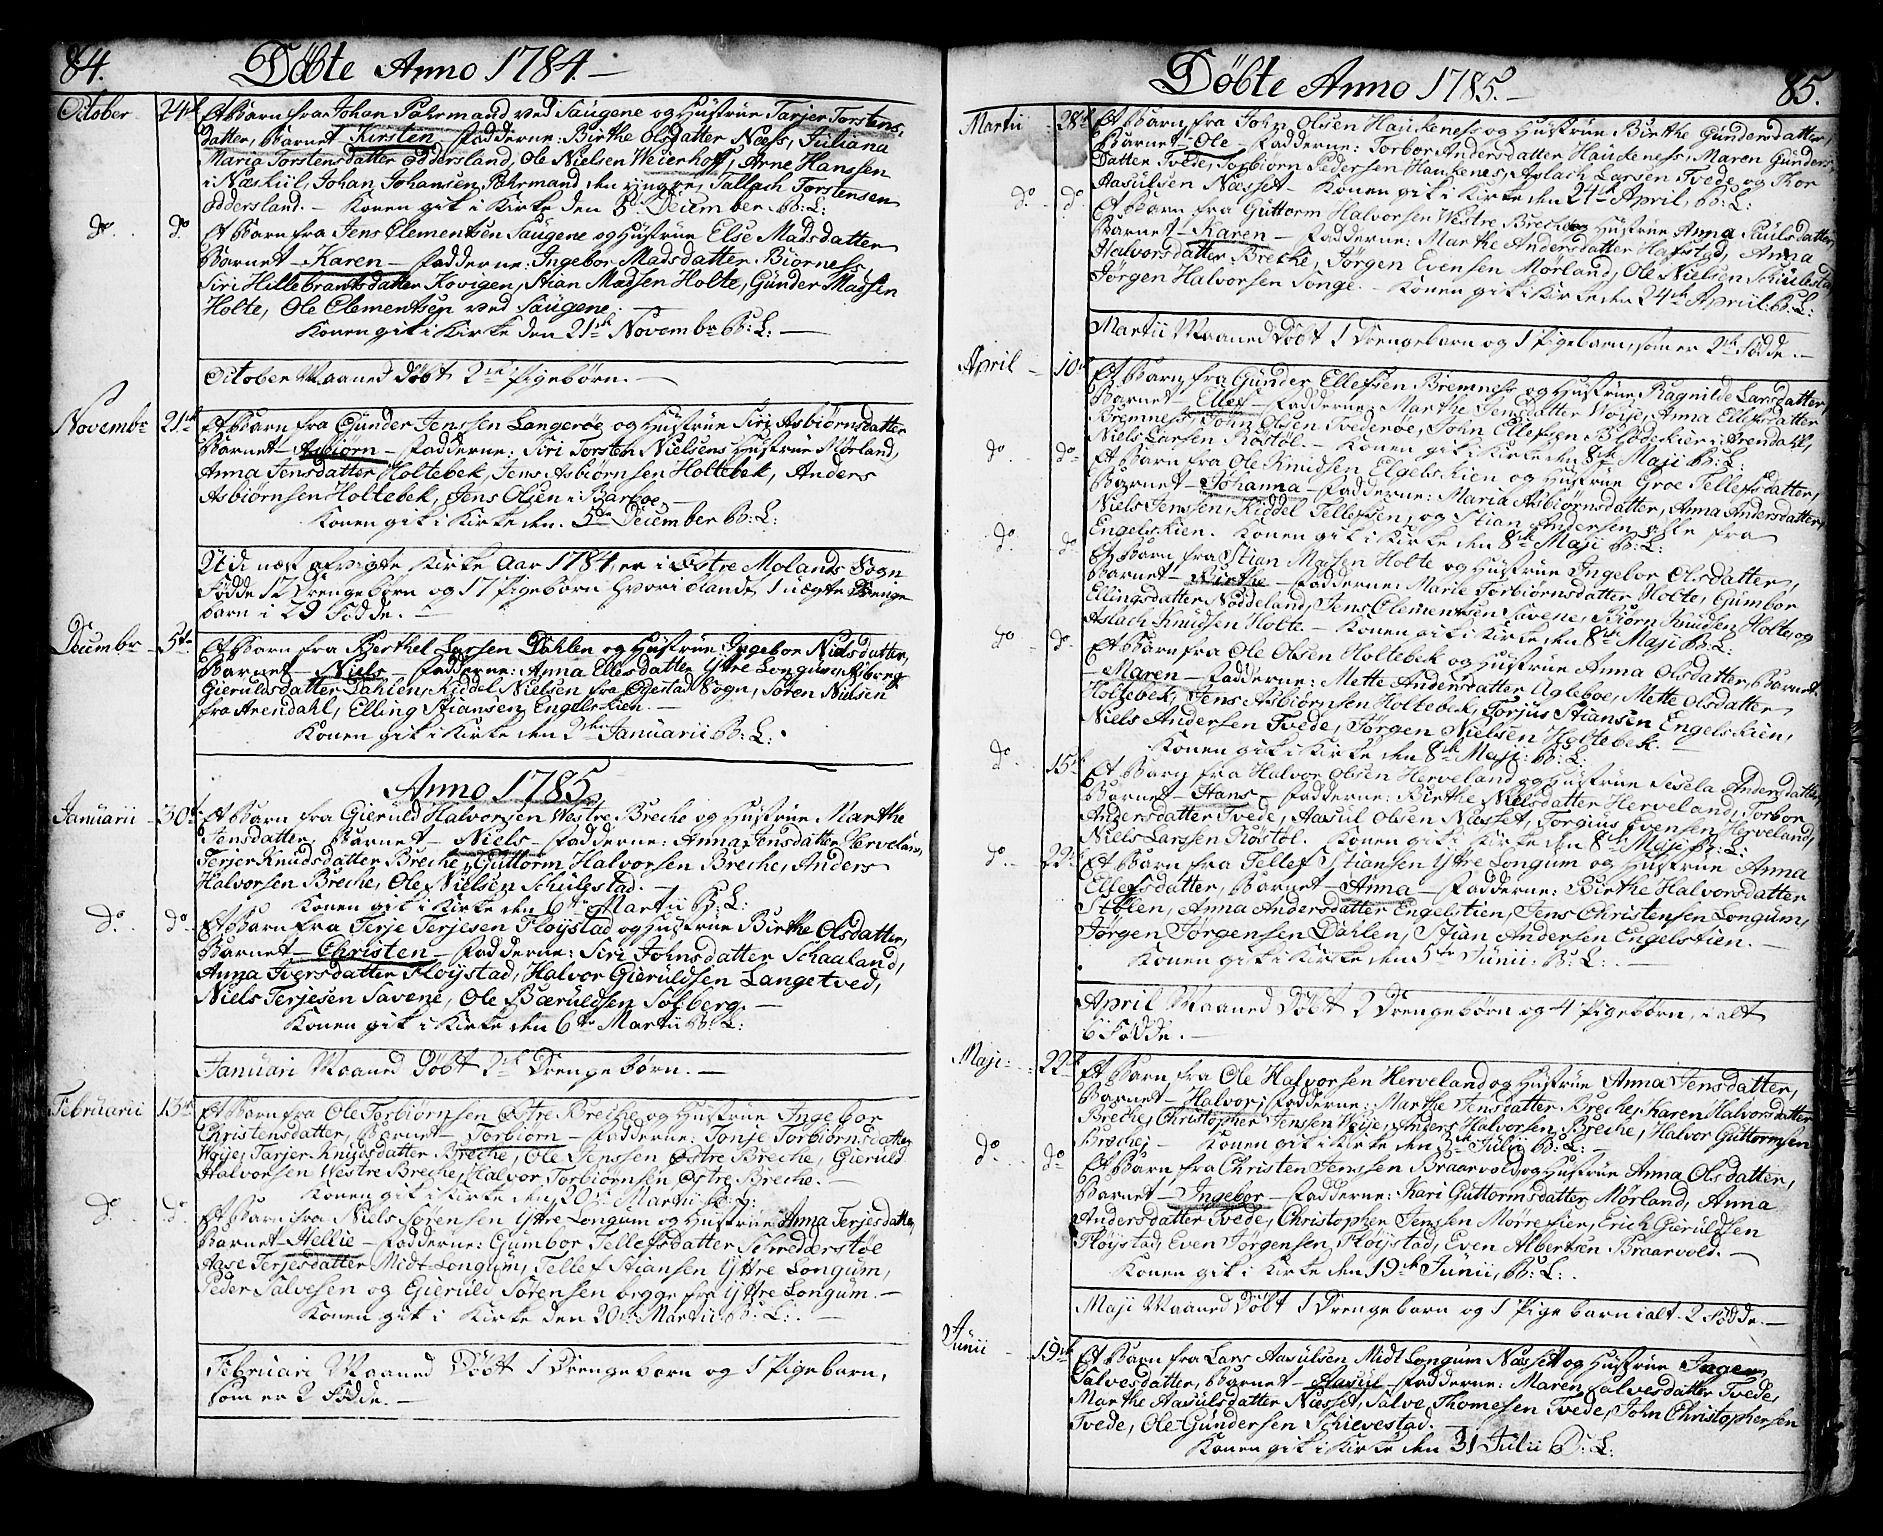 84.
Döbte Anno 1784.
October 24de Et Barn fra Johan Pahrmand ved Saugene og Hustrue Tarjer Torstens-
datter, Barnet Kirsten, Fadderne: Birthe Olsdatter Næss, Juliana
Maria Torstensdatter Oddersland, Ole Nielsen Weierhoff, Arne Hanssen
i Næskiil, Johan Johansen Pahrmand den yngre, Tallach Torstensen
Oddersland. – Konen gik i Kirke den 5te December B: L:
do do Et Barn fra Jens Clementsen Saugene og Hustrue Else Madsdatter
Barnet – Karen – Fadderne: Ingebor Madsdatter Biorness,
Siri Hillebrantsdatter Kovigen, Stian Madsen Holte, Gunder Madsen
Holte, Ole Clementsen ved Saugene.
Konen gik i Kirke den 21de Novembr B: L: –
October Maaned Döbt 2de Pigebörn. –
Novembr 21de Et Barn fra Günder Jenssen Langeröe og Hustrue Siri Asbiörnsdatter
Barnet – Asbiörn – Fadderne: Siri Torsten Nielsens Hustrue Mörland,
Anna Jensdatter Holtebek, Jens Asbiörnsen Holtebek, Anders
Asbiörnsen Holtebek, Jens Olsen i Barboe –
Konen gik i Kirke den 5te December B: L:
Udi næst afvigte Kirke Aar 1784 er i Östre Molands Sogn
Födde 12 Drengebörn og 17 Pigebörn hvori blandt 1 uægte Drenge
barn i 29 Födde. –
Decembr 5te Et Barn fra Berthel Larsen Dahlen og Hustrue Ingebor Nielsdatter,
Barnet – Niels – Fadderne: Anna Ellesdatter Yttre Longum, Asbreg
Gieruldsdatter Dahlen, Kiddel Nielsen fra Ögestad Sogn, Sören Nielsen
fra Arendahl, Elling Stiansen Engelskien. –
Konen gik i Kirke den 2den Januarii B: L:
Anno 1785.
Januarii 30te Et Barn fra Gieruld Halvorsen Westre Breche og Hustrue Marthe
Jensdatter, Barnet – Niels – Fadderne: Anna Jensdatter Herveland,
Terjer Knudsdatter Breche, Guttorm Halvorsen Breche, Anders
Halvorsen Breche, Ole Nielsen Schulestad. –
Konen gik i Kirke den 6te Martii B: L:
do do Et Barn fra Terje Terjesen Flöystad og Hustrue Birthe Olsdatter,
Barnet – Christen – Fadderne: Siri Johnsdatter Schaaland,
Anna Iversdatter Flöystad, Halvor Gieruldsen Langetved,
Niels Terjesen Savene, Ole Bæruldsen Solberg. –
Konen gik i Kirke den 6te Martii B: L:
Januari Maaned Döbt 2de Drengebörn. –
Februarii 13de Et Barn fra Ole Torbiörnsen Östre Breche og Hustrue Ingebor
Christensdatter, Barnet – Torbiörn – Fadderne: Tonje Torbiörnsdatter
Weje, Tarjer Knudsdatter Breche, Ole Jenssen Östre Breche, Gieruld
Halvorsen Westre Breche, Halvor Torbiörnsen Östre Breche. –
Konen gik i Kirke den 20de Martii B: L:
do do Et Barn fra Niels Sörensen Yttre Longum og Hustrue Anna Terjesdatter
Barnet – Hellie – Fadderne: Gumbor Tellefsdatter Schredderstöe
Aase Terjesdatter Midt Longum, Tellef Stiansen Yttre Longum,
Peder Salvesen og Gieruld Sörensen begge fra Yttre Longum. –
Konen gik i Kirke den 20de Martii B: L: –
Februari Maaned Döbt 1 Drengebarn og 1 Pigebarn,
som er 2 Födde. –
Döbte Anno 1785. –
85.
Martii 28de Et Barn fra John Olsen Haukeness og Hustrue Birthe Gundersdatter,
Barnet – Ole – Fadderne: Torbor Andersdatter Haukeness, Maren Gunders-
Datter Tvede, Torbiörn Pedersen Haukenes, Aslach Larsen Tvede og Thor
Aasulsen Næsset – Konen gik i Kirke den 24de April, B: L:
do do Et Barn fra Guttorm Halvorsen Westre Breche og Hustrue Anna Paulsdatter,
Barnet – Karen – Fadderne: Marthe Andersdatter Hafstad, Anna
Halvorsdatter Breche, Jörgen Evensen Mörland, Ole Nielsen Schulestad,
Jörgen Halvorsen Songe. – Konen gik i Kirke den 24de April B: L:
Martii Maaned Döbt 1 Drengebarn og 1 Pigebarn, som er 2de Födde. –
April 10de Et Barn fra Günder Ellefsen Bremness og Hustrue Ragnilde Larsdatter,
Barnet – Ellef – Fadderne: Marthe Jensdatter Weije, Anna Ellefsdatter
Bremness, John Olsen Tvederöe, John Ellefsen Blödekier i Arendahl,
Niels Larsen Röstöl. – Konen gik i Kirke den 8de Maji B: L:
do do Et Barn fra Ole Knudsen Engelskien og Hustrue Groe Tellefsdatter,
Barnet – Johanna – Fadderne: Maria Asbiörnsdatter, Anna Andersdatter,
Niels Jensen, Kiddel Tellefsen, og Stian Andersen alle fra
Engelskien. Konen gik i Kirke den 8de Maji B: L:
do do Et Barn fra Stian Madsen Holte og Hustrue Ingebor Olsdatter,
Barnet – Birthe – Fadderne: Marie Torbiornsdatter Holte, Gumbor
Ellingsdatter Noddeland, Jens Clementsen Savene, Biörn Knudsen Holte, og
Aslach Knudsen Holte. – Konen gik i Kirke den 8de Maji B: L:
do do Et Barn fra Ole Olsen Holtebek og Hustrue Anna Olsdatter, Barnet
– Maren – Fadderne: Mette Andersdatter Agleboe, Mette Olsdatter
Holtebek, Jens Asbiörnsen Holtebek, Torjus Stiansen Engelskien,
Niels Andersen Tvede, Jörgen Nielsen Holtebek.
Konen gik i Kirke den 8de Maji B: L:
do 15de Et Barn fra Halvor Olsen Herveland og Hustrue Sesela Andersdatter,
Barnet – Hans – Fadderne: Birthe Nielsdatter Herveland, Torbor
Andersdatter Tvede, Aasul Olsen Næsset, Torgius Evensen Herveland,
Niels Larssen Röstöl. Konen gik i Kirke den 8de Maji B: L:
do 22de Et Barn fra Tellef Stiansen Yttre Longum og Hustrue Anna
Ellefsdatter, Barnet – Anna – Fadderne: Birthe Halvorsdatter
Stölen, Anna Andersdatter Engelstien, Jens Christensen Longum,
Jörgen Jörgensen Dahlen, Stian Andersen Engelstien. –
Konen gik i Kirke den 5te Junii B: L: –
April Maaned Döbt 2 Drengebörn og 4 Pigebörn, i alt
6 Födde. –
Maji: 22de Et Barn fra Ole Halvorsen Herveland og Hustrue Anna Jensdatter,
Barnet – Halvor, Fadderne: Marthe Jensdatter Breche, Karen Halvorsdatter
Breche, Christopher Jensen Weije, Anders Halvorsen Breche, Halvor Guttormsen
Breche, – Konen gik i Kirke den 3de Julii B: L: –
do do Et Barn fra Christen Jenssen Braarvold og Hustrue Anna Olsdatter,
Barnet – Ingebor – Fadderne: Kari Guttormsdatter Mörland, Anna
Andersdatter Tvede, Christopher Jenssen Mörrefier, Erich Gieruldsen
Flöystad, Even Jörgensen Flöystad, Even Albertsen Braarvold. –
Konen gik i Kirke den 19de Junii, B: L:
Maji Maaned Döbt 1 Drengebarn og 1 Pigebarn i alt 2 Födde. –
Junii 19de Et Barn fra Lars Aasulsen Midt Longum Næsset og Hustrue Inger
Salvesdatter, Barnet – Aasul – Fadderne: Maren Salvesdatter Tvede,
Marthe Aasulsdatter Næsset, Salve Thomesen Tvede, John Christophersen
Tvede, Ole Gundersen Schievestad. –
Konen gik i Kirke den 31 Julii B: L: